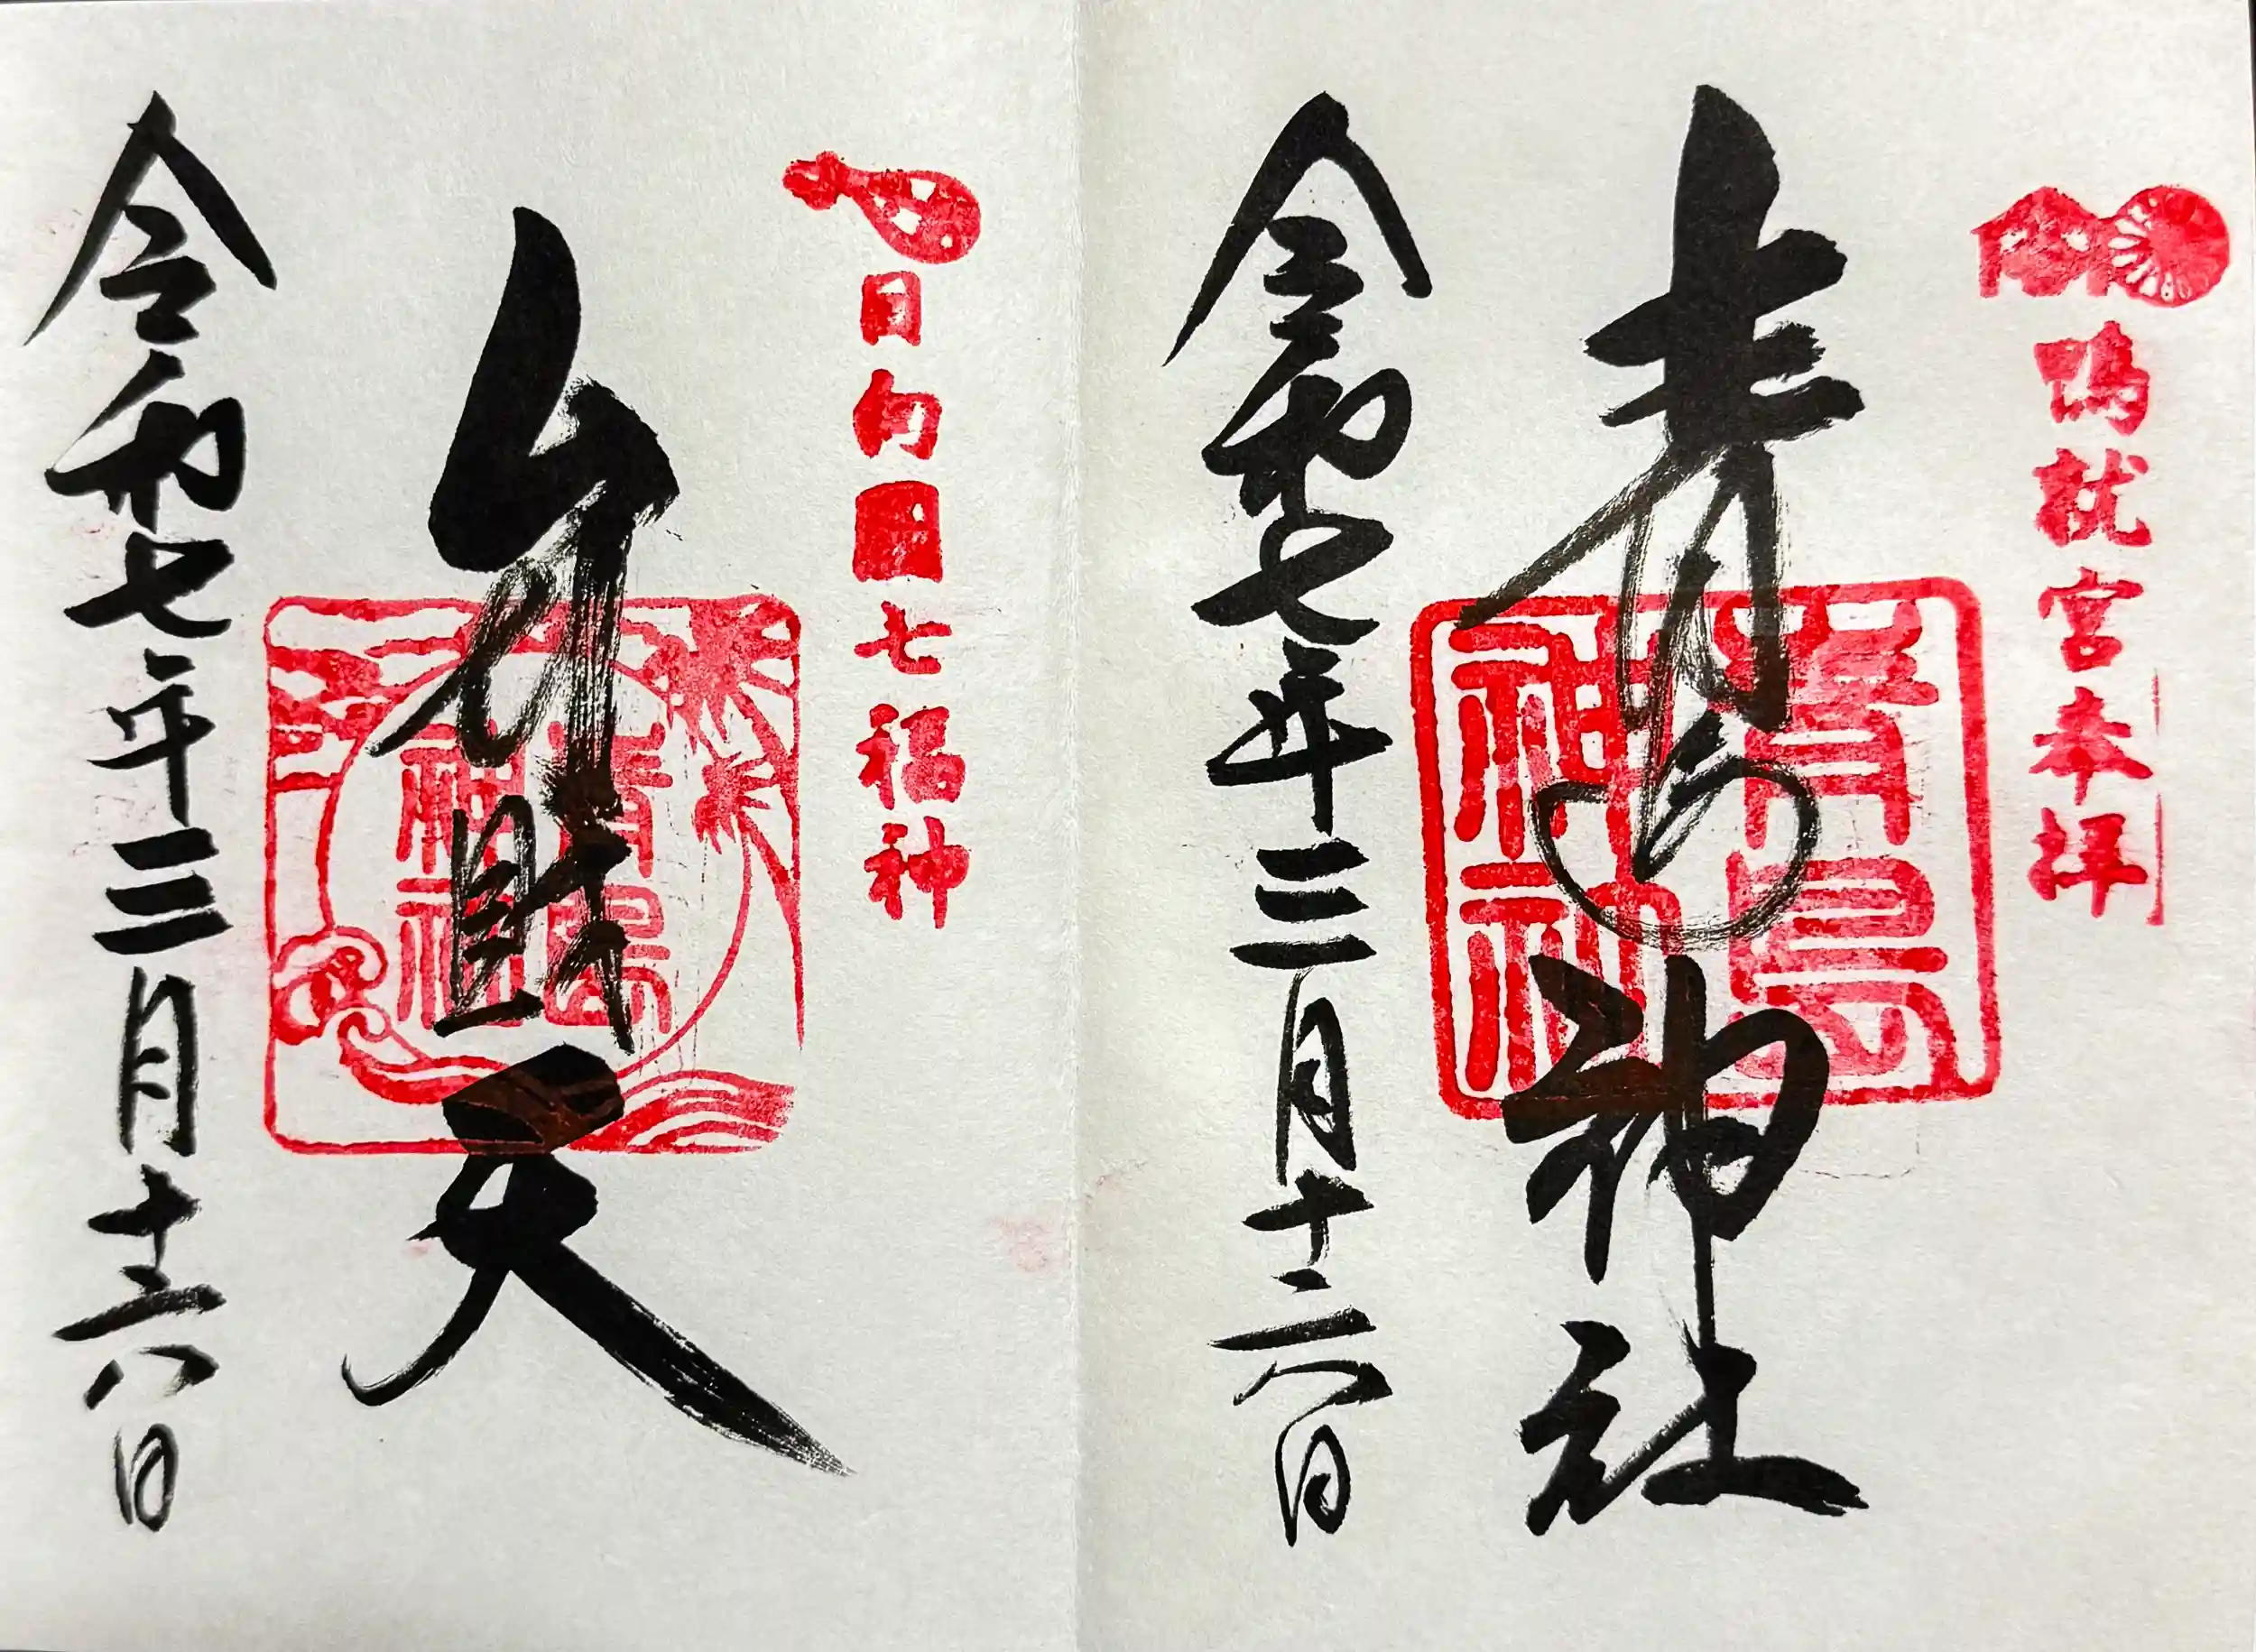 鴨就宮奉拝
青島神社
青島
神社
令和七年三月十六日
日向國七福神
弁財天
青島
神社
令和七年三月十六日